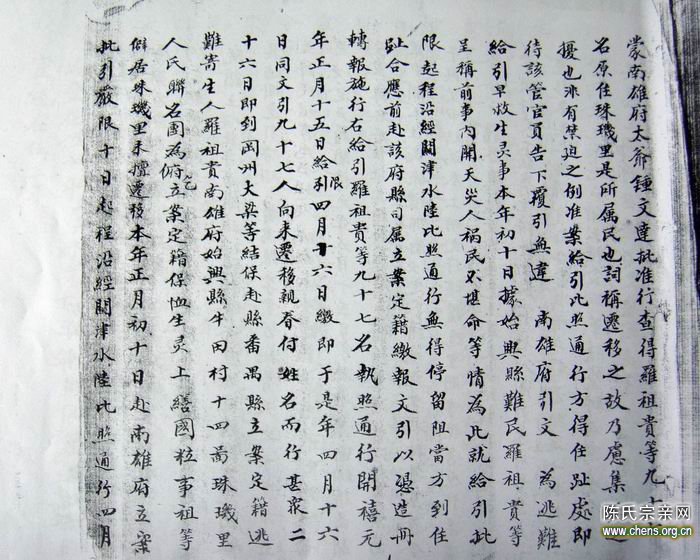 蒙南雄府太爺鍾文達批准行查得羅祖貴等九十
名原住珠璣里是所属民也詞稱遷移之故乃慮集
擾也非有禁迫之例准案給引此照通行方得住趾處即
待該管官員告下覆引無違　南雄府引文　為逃難
給引早救生灵事本年初十日據始興縣難民羅祖貴等
呈稱前事内開天災人禍民不堪命等情為此就給引此
限起程沿經關津水陸比照通行無得停留阻當方到住
趾合應前赴該府縣司属立案定籍繳報文引以憑造冊
轉報施行右給引羅祖貴等九十七名執照通行開禧元
年正月十五日給引限四月十六日繳即于是年四月十六
日同文引九十七人向来遷移親眷付姓名而行甚衆二
十六日即到岡州大梁等結保赴縣番禺縣立案定籍逃
難寄生人羅祖貴南雄府始興縣牛田村十四圖珠璣里
人民聯名團為俯乞立案定籍保恤生灵上繕國粒事祖等
僻居珠璣里未擅遷移本年正月初十日赴南雄府立案
批引嚴限十日起程沿經關津水陸比照通行四月
陈氏宗亲网
www.chens.org.cn